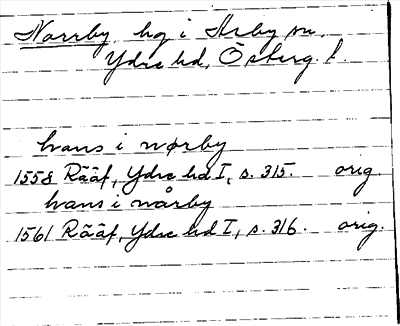 Norrby, hg i Asby sn.
Ydre hd, Österg. l.
hans i nørby
1558 Rääf, Ydre hd I, s. 315. orig.
hans i nårby
1561 Rääf, Ydre hd I, s. 316. orig.